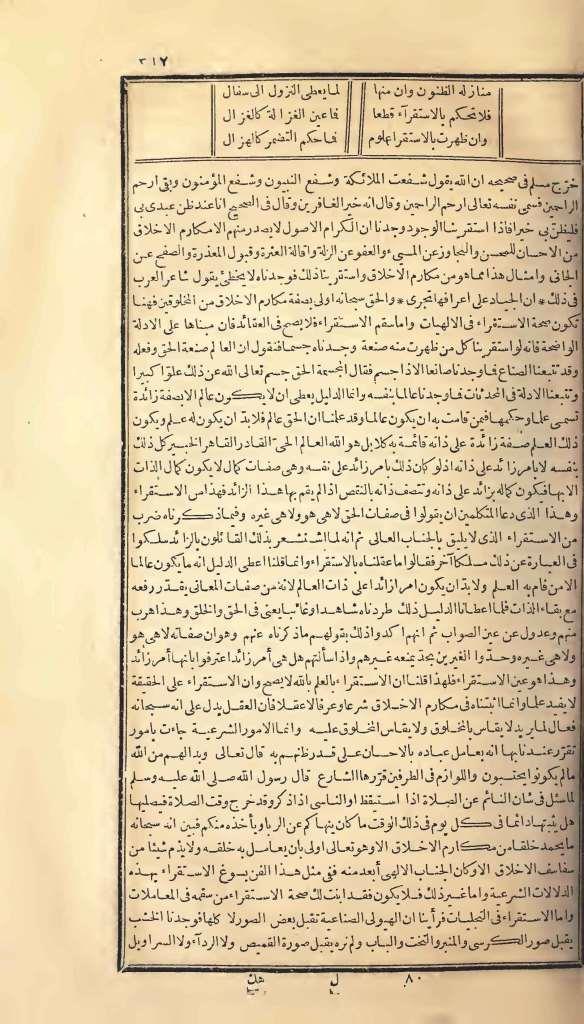 ٣١٧
منازله الظنون وان منها لما يعطى النزول الى سفال
فلا تحكم بالاستقرآء قطعا فاعين الغزالة كالغزال
وان ظهرت بالاستقراعلوم فاحكم التضمر كالهزال
خرّج مسلم فى صحيحه ان الله يقول شفعت الملائكة وشفع النبيون وشفع المؤمنون وبقى ارحم
الراحمين فسمى نفسه تعالى ارحم الراحمين وقال انه خير الغافرين وقال فى الصحيح انا عند ظن عبدى بى
فليظن بى خيرا فاذا استقرينا الوجود وجدنا ان الكرام الاصول لا يصدر منهم الا مكارم الاخلاق
من الاحسان للمحسن والتجاوز عن المسىء والعفو عن الزلة واقالة العثرة وقبول المعذرة والصفح عن
الجانى وامثال هذا مما هو من مكارم الاخلاق واستقرينا ذلك فوجدناه لا يخطئ يقول شاعر العرب
فى ذلك * ان الجياد على اعراقها تجرى * والحق سبحانه اولى بصفة مكارم الاخلاق من المخلوقين فهنا
تكون صحة الاستقراء فى الالهيات واما سقم الاستقراء فلا يصح فى العقائد فان مبناها على الادلة
الواضحة فانه لو استقرينا كل من ظهرت منه صنعة وجدناه جسما فنقول ان العالم صنعة الحق وفعله
وقد تتبعنا الصناع فما وجدنا صانعا الا ذا جسم فقال المجسمة الحق جسم تعالى الله عن ذلك علوّا كبيرا
وتتبعنا الادلة فى المحدثات فما وجدنا عالما بنفسه وانما الدليل يعطى ان لا يكون عالم الا بصفة زائدة
تسمى علما وحكمها فيمن قامت به ان يكون عالما وقد علمنا ان الحق عالم فلا بدّ ان يكون له علم ويكون
ذلك العلم صفة زائدة على ذاته قائمة به كلا بل هو الله العالم الحىّ القادر القاهر الخبير كل ذلك
بنفسه لا بامر زائد على ذاته اذ لو كان ذلك بامر زائد على نفسه وهى صفات كمال لا يكون كمال الذات
الا بها فيكون كماله بزائد على ذاته وتتصف ذاته بالنقص اذا لم يقم بها هذا الزائد فهذا من الاستقراء
وهذا الذى دعا المتكلمين ان يقولوا فى صفات الحق لا هى هو ولا هى غيره وفيما ذكرناه ضرب
من الاستقراء الذى لا يليق بالجناب العالى ثم انه لما استشعر بذلك القائلون بالزائد سلكوا
فى العبارة عن ذلك مسلكا آخر فقالوا ما عقلناه بالاستقراء وانما قلنا اعطى الدليل انه ما يكون عالما
الا من قام به العلم ولا بدّ ان يكون امرا زائدا على ذات العالم لانه من صفات المعانى يقدّر رفعه
مع بقاء الذات فلما اعطانا الدليل ذلك طردناه شاهدا وغائبا يعنى فى الحق والخلق وهذا هرب
منهم وعدول عن عين الصواب ثم انهم اكدوا ذلك بقولهم ما ذكرناه عنهم وهو ان صفاته لا هى هو
ولا هى غيره وحدّوا الغيرين بحدّ يمنعه غيرهم واذا سألتهم هل هى أمر زائد اعترفوا بانها أمر زائد
وهذا هو عين الاستقراء فلهذا قلنا ان الاستقراء بالعلم بالله لا يصح وان الاستقراء على الحقيقة
لا يفيد علما وانما اثبتناه فى مكارم الاخلاق شرعا وعرفا لا عقلا فان العقل يدل على انه سبحانه
فعال لما يريد لا يقاس بالمخلوق ولا يقاس المخلوق عليه وانما الامور الشرعية جاءت بامور
تقرر عندنا بها انه يعامل عباده بالاحسان على قدر ظنهم به قال تعالى وبدا لهم من الله
ما لم يكونوا يحتسبون واللوازم فى الطرفين قررها الشارع قال رسول الله صلى الله عليه وسلم
لما سئل فى شان النائم عن الصلاة اذا استيقظ او الناسى اذا ذكر وقد خرج وقت الصلاة فيصليها
هل يثبتها دائما فى كل يوم فى ذلك الوقت ما كان ينهاكم عن الربا ويأخذه منكم فبين انه سبحانه
ما يحمد خلقا من مكارم الاخلاق الا وهو تعالى اولى بان يعامل به خلقه ولا يذم شيئا من
سفاسف الاخلاق الا وكان الجناب الالهى أبعد منه ففى مثل هذا الفن يسوغ الاستقراء بهذه
الدلالات الشرعية واما غير ذلك فلا يكون فقد ابنت لك صحة الاستقراء من سقمه فى المعاملات
واما الاستقراء فى التجليات فرأينا ان الهيولى الصناعية تقبل بعض الصور لا كلها فوجدنا الخشب
يقبل صور الكرسى والمنبر والتخت والباب ولم نره يقبل صورة القميص ولا الردآء ولا السراويل
٨٠ ل